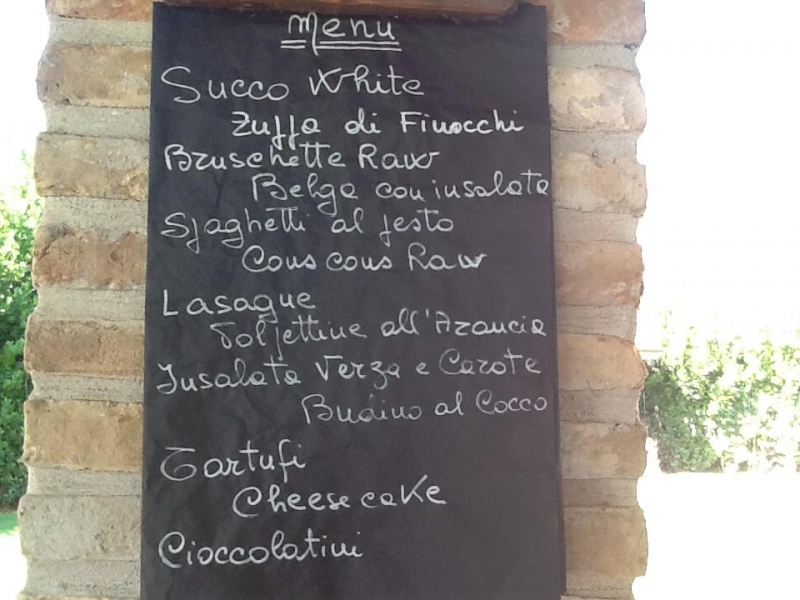 Menu
Succo White
Zuppa di Finocchi
Bruschette Raw
Belga con insalata
Spaghetti al pesto
Cous cous Raw
Lasagne
Polpettine all'Arancia
Insalata Verza e Carote
Budino al Cocco
Tartufi
Cheese cake
Cioccolatini